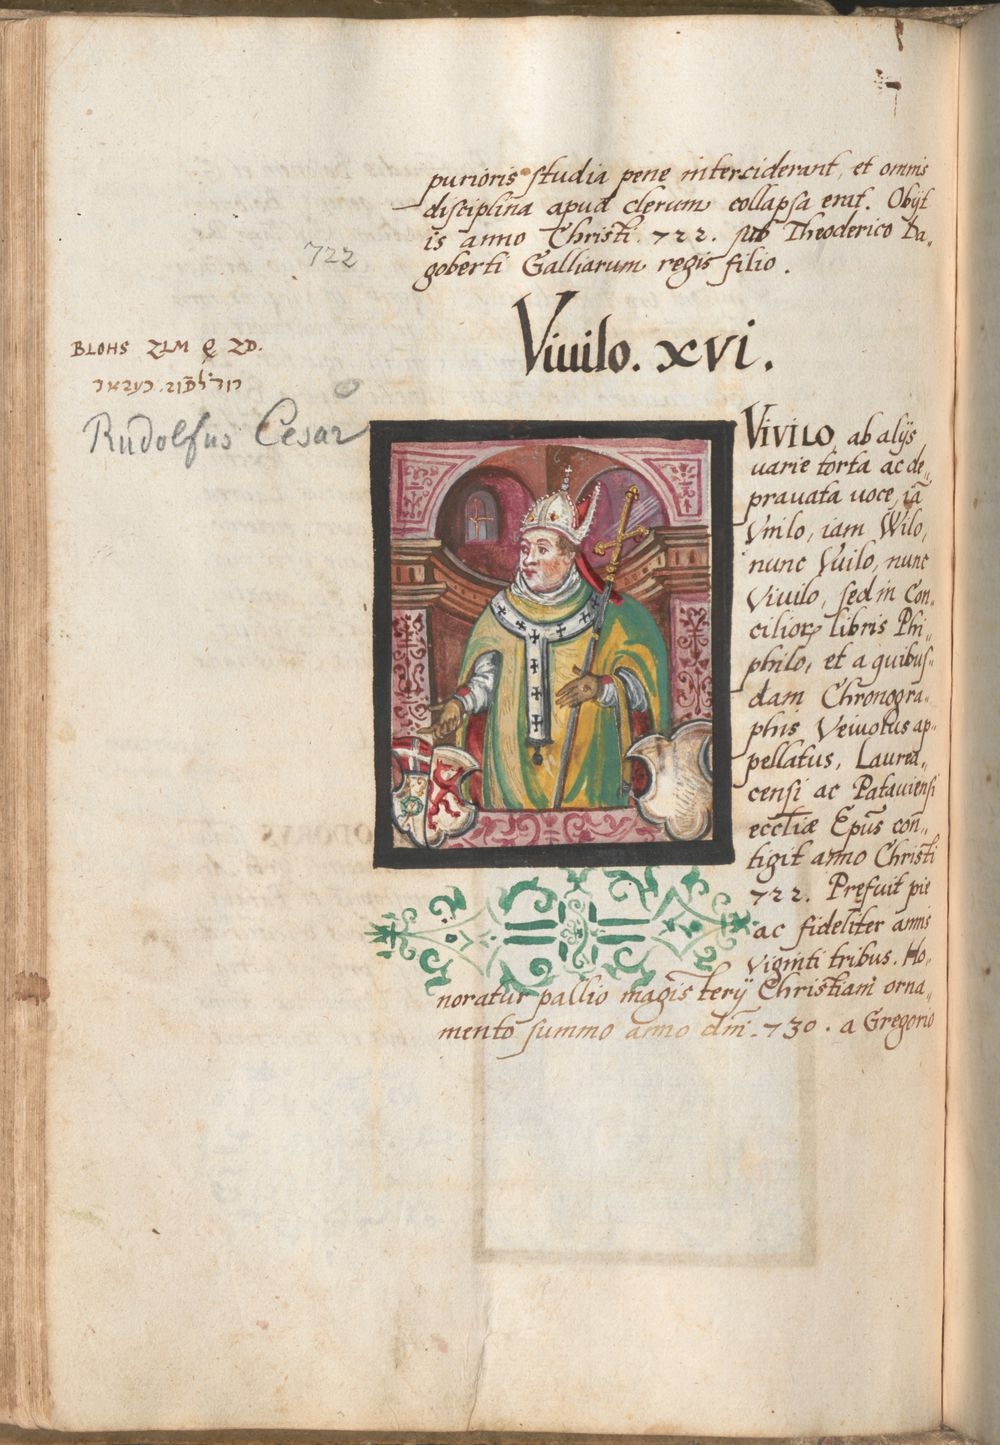 purioris studia pene interciderant, et omnis
disciplina apud clerum collapsa erat. Obijt
is anno Christi. 722. sub Theoderico Da„
goberti Galliarum regis filio.
722
Viuilo. xvi.
BLOHS
Rudolfus Cesar
VIVILO, ab alijs
uarie torta ac de„
prauata uoce, iā
Vnilo, iam Wilo,
nunc Vuilo, nunc
Viuilo, sed in Con„
cilioꝝ libris Phi„
philo, et a quibus„
dam Chronogra„
phis Veiuolus ap„
pellatus, Laurea„
censi ac Patauiensi
eccliæ Epūs con„
tigit anno Christi
722. Prefuit pie
ac fideliter annis
viginti tribus. Ho„
noratur pallio magisterij Christiani orna„
mento summo anno dm̄. 730. a Gregorio